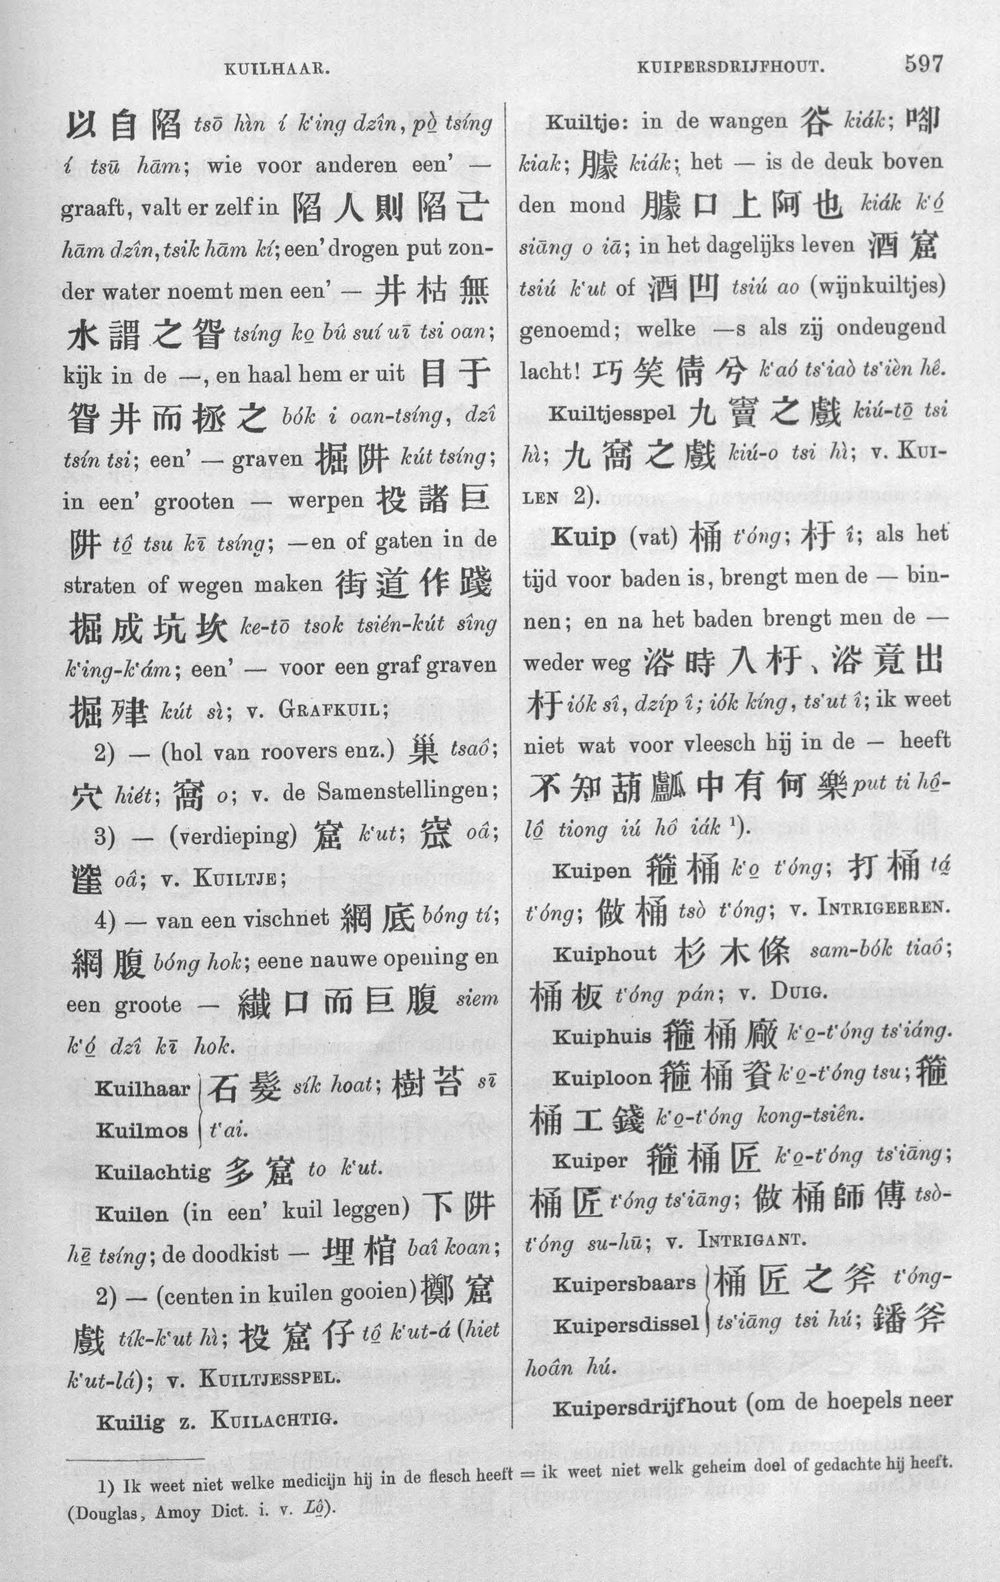 KUILHAAR.
KUIPERSDRIJFHOUT.
597
以自陷 tsō hìn í k‘ing dzîn, pò̤ tsíng
í tsū hām; wie voor anderen een’ —
graaft, valt er zelf in 陷人則陷己
hām dzîn, tsik hām kí; een’ drogen put zon-
der water noemt men een’ — 井枯無
水謂之眢 tsíng ko̤ bû suí uī tsi oan;
kijk in de —, en haal hem er uit 目于
眢井而拯之 bók i oan-tsíng, dzî
tsín tsi; een’ — graven 掘阱 kút tsíng;
in een’ grooten — werpen 投諸巨
阱 tô̤ tsu kī tsíng; —en of gaten in de
straten of wegen maken 街道作踐
掘成坑坎 ke-tō tsok tsién-kút sîng
k‘ing-k‘ám; een’ — voor een graf graven
掘肂 kút sì; v. GRAFKUIL;
2) — (hol van roovers enz.) 巢 tsaô;
穴 hiét;窩 o; v. de Samenstellingen;
3) — (verdieping) 窟 k‘ut; 窊 oâ;
窪 oâ; v. KUILTJE;
4) — van een vischnet 網底 bóng tí;
網腹 bóng hok; eene nauwe opening en
een groote — 纖口而巨腹 siem
k‘ó̤ dzî kī hok.
Kuilhaar 石髮 sík hoat; 樹苔 sī
Kuilmos t‘ai.
Kuilachtig 多窟 to k‘ut.
Kuilen (in een’ kuil leggen) 下阱
hē̤ tsíng; de doodkist — 埋棺 baî koan;
2) — (centen in kuilen gooien) 擲窟
戲 tík-k‘ut hì; 投窟仔 tô̤ k‘ut-á (hiet
k‘ut-lá); v. KUILTJESSPEL.
Kuilig z. KUILACHTIG.
Kuiltje: in de wangen 谷 kiák; 㖸
kiak; 臄 kiák; het — is de deuk boven
den mond 臄口上阿也 kiák k‘ó̤
siāng o iā; in het dagelijks leven 酒窟
tsiú k‘ut of 酒凹 tsiú ao (wijnkuiltjes)
genoemd; welke —s als zij ondeugend
lacht! 巧笑倩兮 k‘aó ts‘iaò ts‘ièn hê.
Kuiltjesspel 九竇之戲 kiú-tō̤ tsi
hì; 九窩之戲 kiú-o tsi hì; v. KUI-
LEN 2).
Kuip (vat) 桶 t‘óng; 杅 î; als het
tijd voor baden is, brengt men de — bin-
nen; en na het baden brengt men de —
weder weg 浴時入杅、浴竟出
杅 iók sî, dzíp î; iók kíng, ts‘ut î; ik weet
niet wat voor vleesch hij in de — heeft
不知葫蘆中有何樂 put ti hô̤-
lô̤ tiong iú hô iák ¹).
Kuipen 箍桶 k‘o̤ t‘óng; 打桶 tá̤
t‘óng; 做桶 tsò t‘óng; v. INTRIGEEREN.
Kuiphout 杉木條 sam-bók tiaô;
桶板 t‘óng pán; v. DUIG.
Kuiphuis 箍桶廠 k‘o̤-t‘óng ts‘iáng.
Kuiploon 箍桶資 k‘o̤-t‘óng tsu; 箍
桶工錢 k‘o̤-t‘óng kong-tsiên.
Kuiper 箍桶匠 k‘o̤-t‘óng ts‘iāng;
桶匠 t‘óng ts‘iāng; 做桶師傅 tsò-
t‘óng su-hū; v. INTRIGANT.
Kuipersbaars 桶匠之斧 t‘óng-
Kuipersdissel ts‘iāng tsi hú; 鐇斧
hoân hú.
Kuipersdrijfhout (om de hoepels neer
1) Ik weet niet welke medicijn hij in de flesch heeft = ik weet niet welk geheim doel of gedachte hij heeft.
(Douglas, Amoy Dict. i. v. Lô̤).